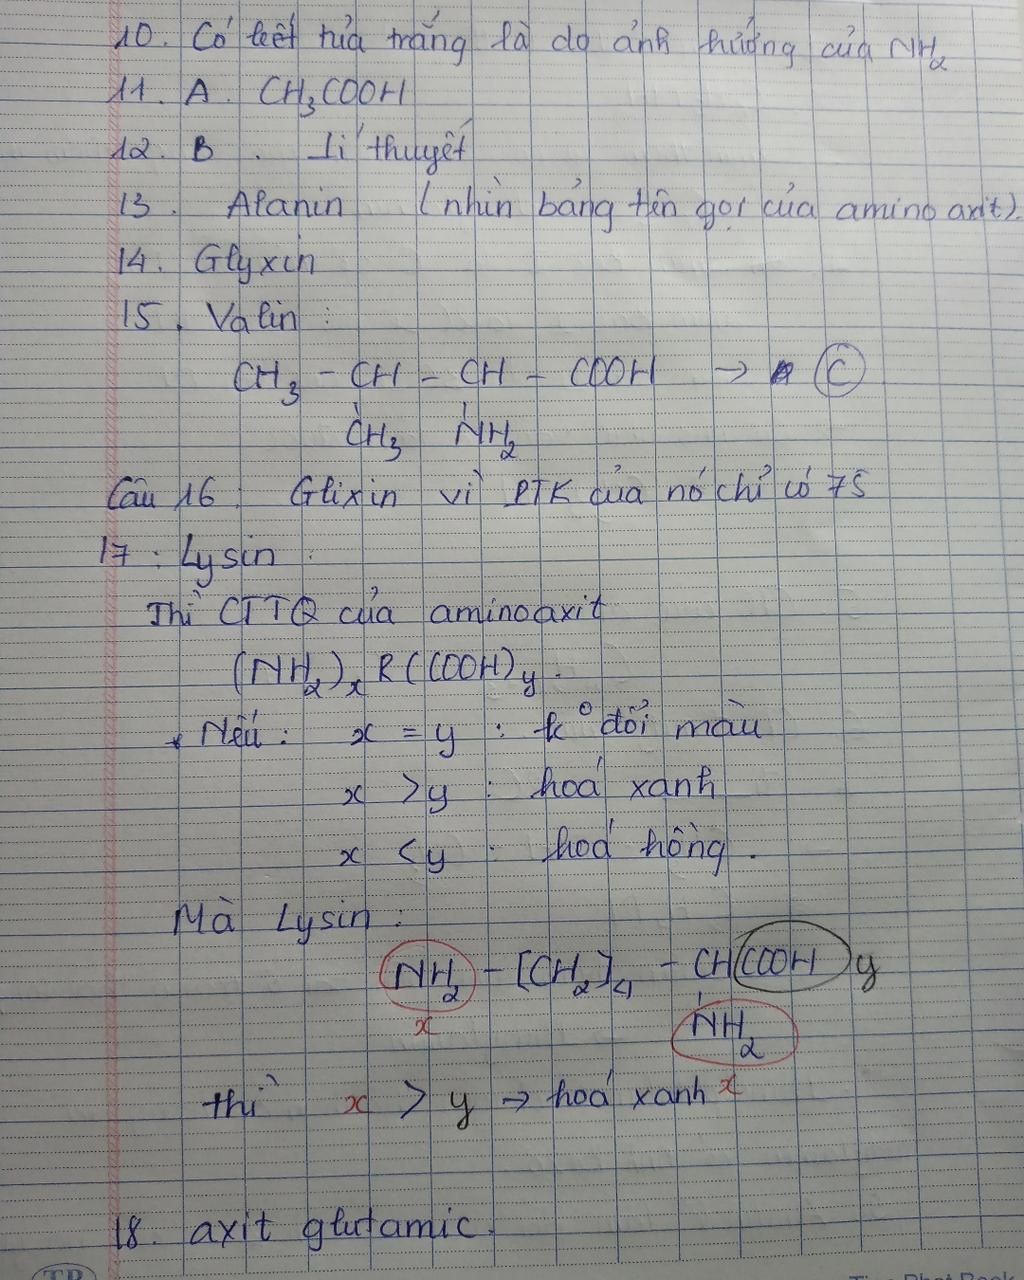 10. Có kết tủa trắng là do ảnh hưởng của NH2
11. A. CH3COOH
12. B. Lí thuyết
13. Alanin (nhìn bảng tên gọi của amino axit).
14. Glyxin
15. Valin:
CH3 - CH - CH - COOH → C
CH3 NH2
Câu 16: Glixin vì PTK của nó chỉ có 75
17: Lysin:
Thì CTTQ của aminoaxit
(NH2)x R(COOH)y.
* Nếu: x = y : k° đổi màu
x > y : hoá xanh
x < y : hoá hồng.
Mà Lysin:
NH2 - [CH2]4 - CH COOH y
x NH2
thì x > y → hoá xanh x
18. axit glutamic.
TP